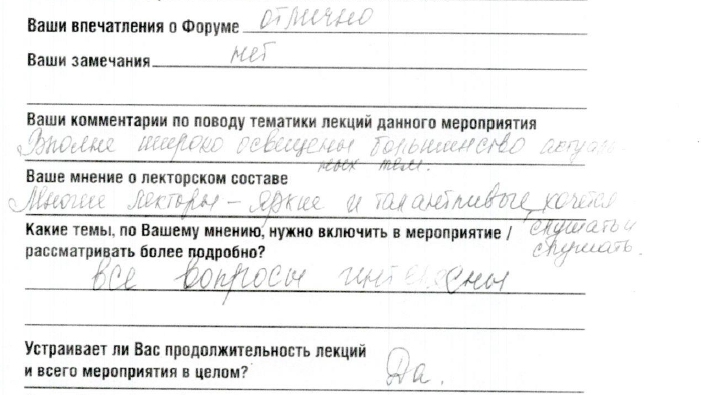 Ваши впечатления о Форуме отлично
Ваши замечания нет
Ваши комментарии по поводу тематики лекций данного мероприятия
Вполне широко освещены большинство актуаль
ных тем.
Ваше мнение о лекторском составе
Многие лекторы – яркие и талантливые, хочется
слушать и
слушать.
Какие темы, по Вашему мнению, нужно включить в мероприятие /
рассматривать более подробно?
все вопросы интересны
Устраивает ли Вас продолжительность лекций
и всего мероприятия в целом? Да.